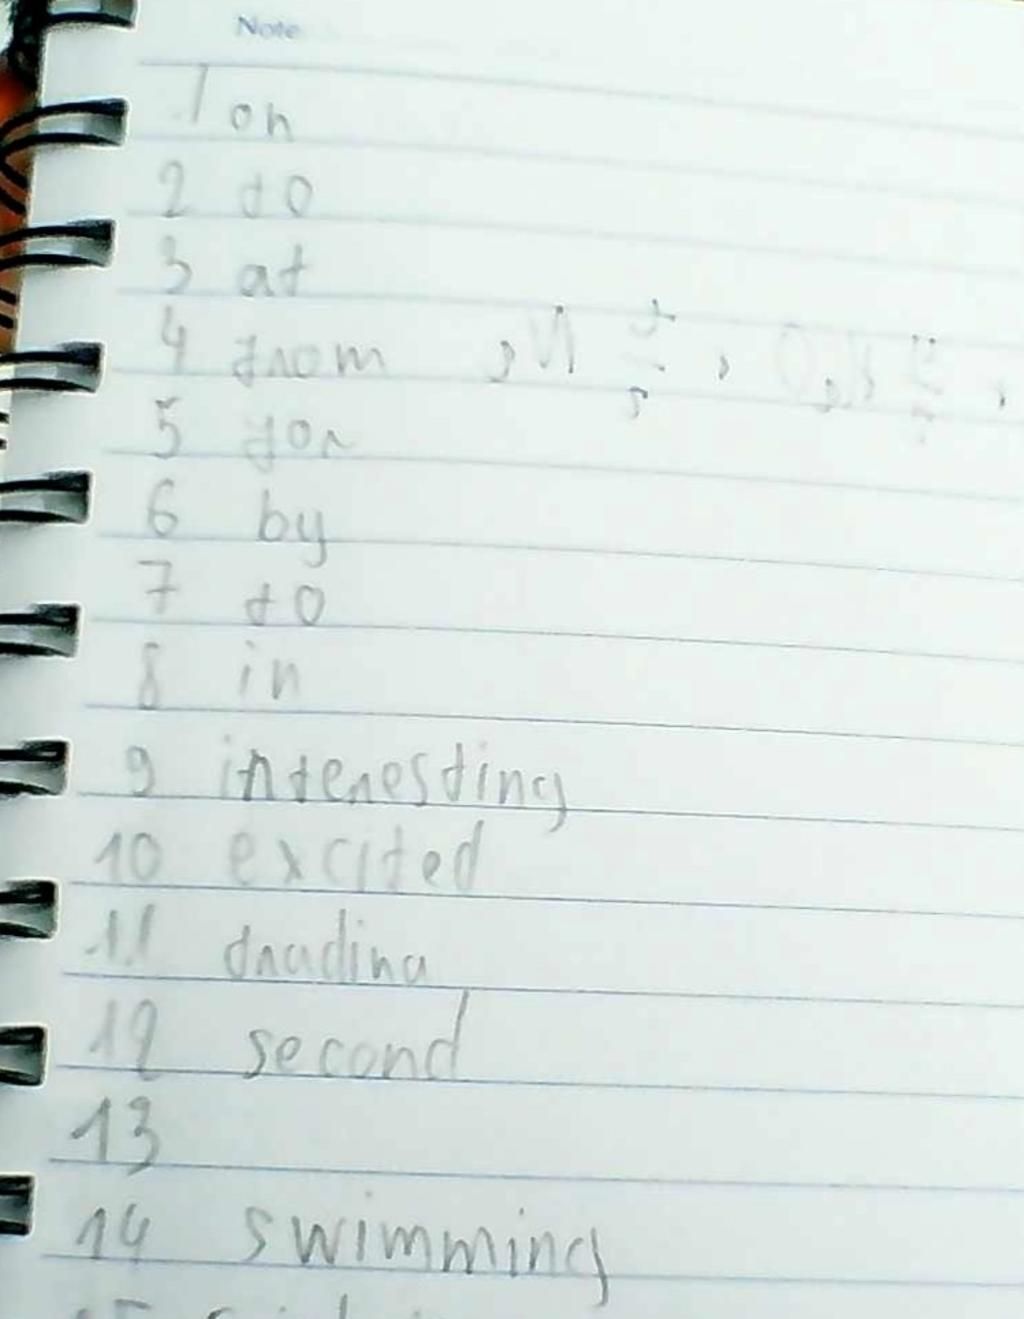 Note
1 on
2 to
3 at
4 from
5 for
6 by
7 to
8 in
9 interesting
10 excited
11
12 second
13
14 swimming